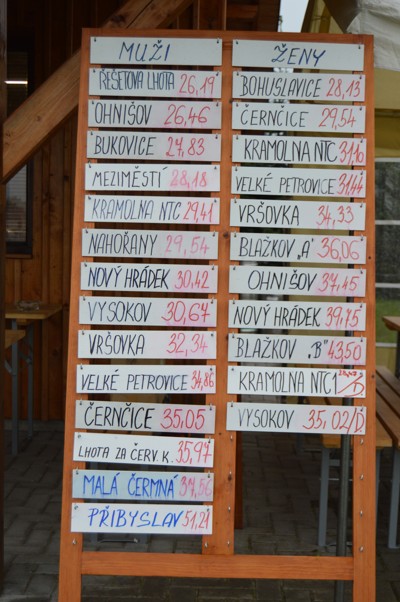 MUŽI
ŘEŠETOVA LHOTA 26,19
OHNIŠOV 26,46
BUKOVICE 27,83
MEZIMĚSTÍ 28,18
KRAMOLNA NTC 29,41
NAHOŘANY 29,54
NOVÝ HRÁDEK 30,42
VYSOKOV 30,67
VRŠOVKA 32,34
VELKÉ PETROVICE 34,86
ČERNČICE 35,05
LHOTA ZA ČERV. K. 35,97
MALÁ ČERMNÁ 37,56
PŘIBYSLAV 51,21
ŽENY
BOHUSLAVICE 28,13
ČERNČICE 29,54
KRAMOLNA NTC 31,10
VELKÉ PETROVICE 31,44
VRŠOVKA 34,33
BLAŽKOV „A" 36,06
OHNIŠOV 37,45
NOVÝ HRÁDEK 39,75
BLAŽKOV „B" 43,50
KRAMOLNA NTC1 /D.
VYSOKOV 35,02/D.